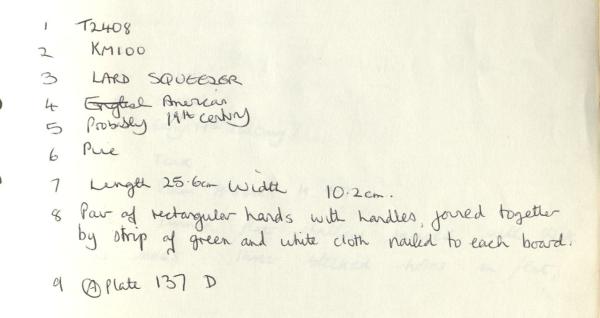 1 T2408
2 KM100
3 LARD SQUEEZER
4 English American
5 Probably 19th century
6 Pine
7 Length 25.6cm Width 10.2cm.
8 Pair of rectangular hands with handles, joined together
by strip of green and white cloth nailed to each board.
9 A Plate 137 D